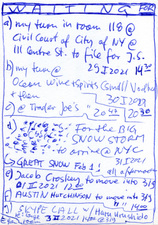 WAITING FOR
a) my turn in room 118 @
Civil Court of City of NY @
111 Centre St. to file for J.S.
b) my turn @ 29 I 2021 14
Ocean Wine & Spirits (small Vodka
30 I 2021
c) @ Trader Joe's 20 20
d) for the BIG
SNOW STORM
to arrive @ NYC
↳ GREAT SNOW Feb 1! 31 I 2021
all afternoon
e) Jacob Crosley to move into 3/5
01 II 2021 12
f) AUSTIN HUTCHINSON to move into 3/5
g) SKYPE CALL
3 II 2021